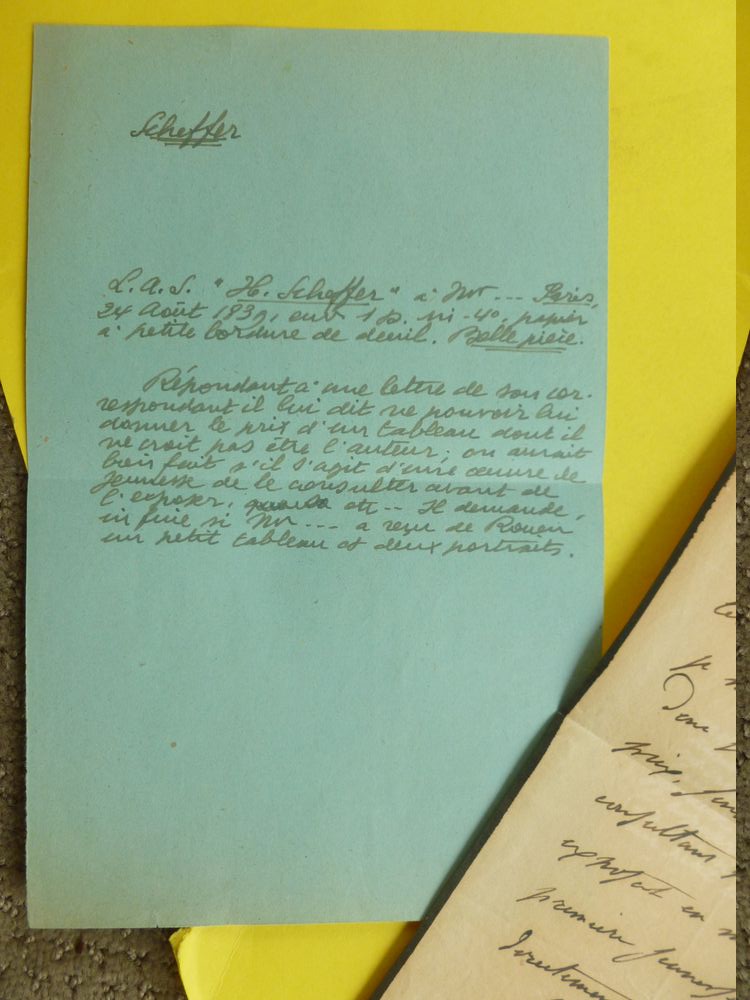 Scheffer
L.A.S. "H. Scheffer" à Mr --- Paris,
24 Août 1839, env 1 p. in-4°, papier
à petite bordure de deuil. Belle pièce.
Répondant à une lettre de son cor-
respondant il lui dit ne pouvoir lui
donner le prix d'un tableau dont il
ne croit pas être l'auteur; on aurait
bien fait s'il s'agit d'une œuvre de
jeunesse de le consulter avant de
l'exposer, etc -- Il demande,
in fine si Mr --- a reçu de Rouen
un petit tableau et deux portraits.
je
Donc
prix,
consultant
exposat en
première